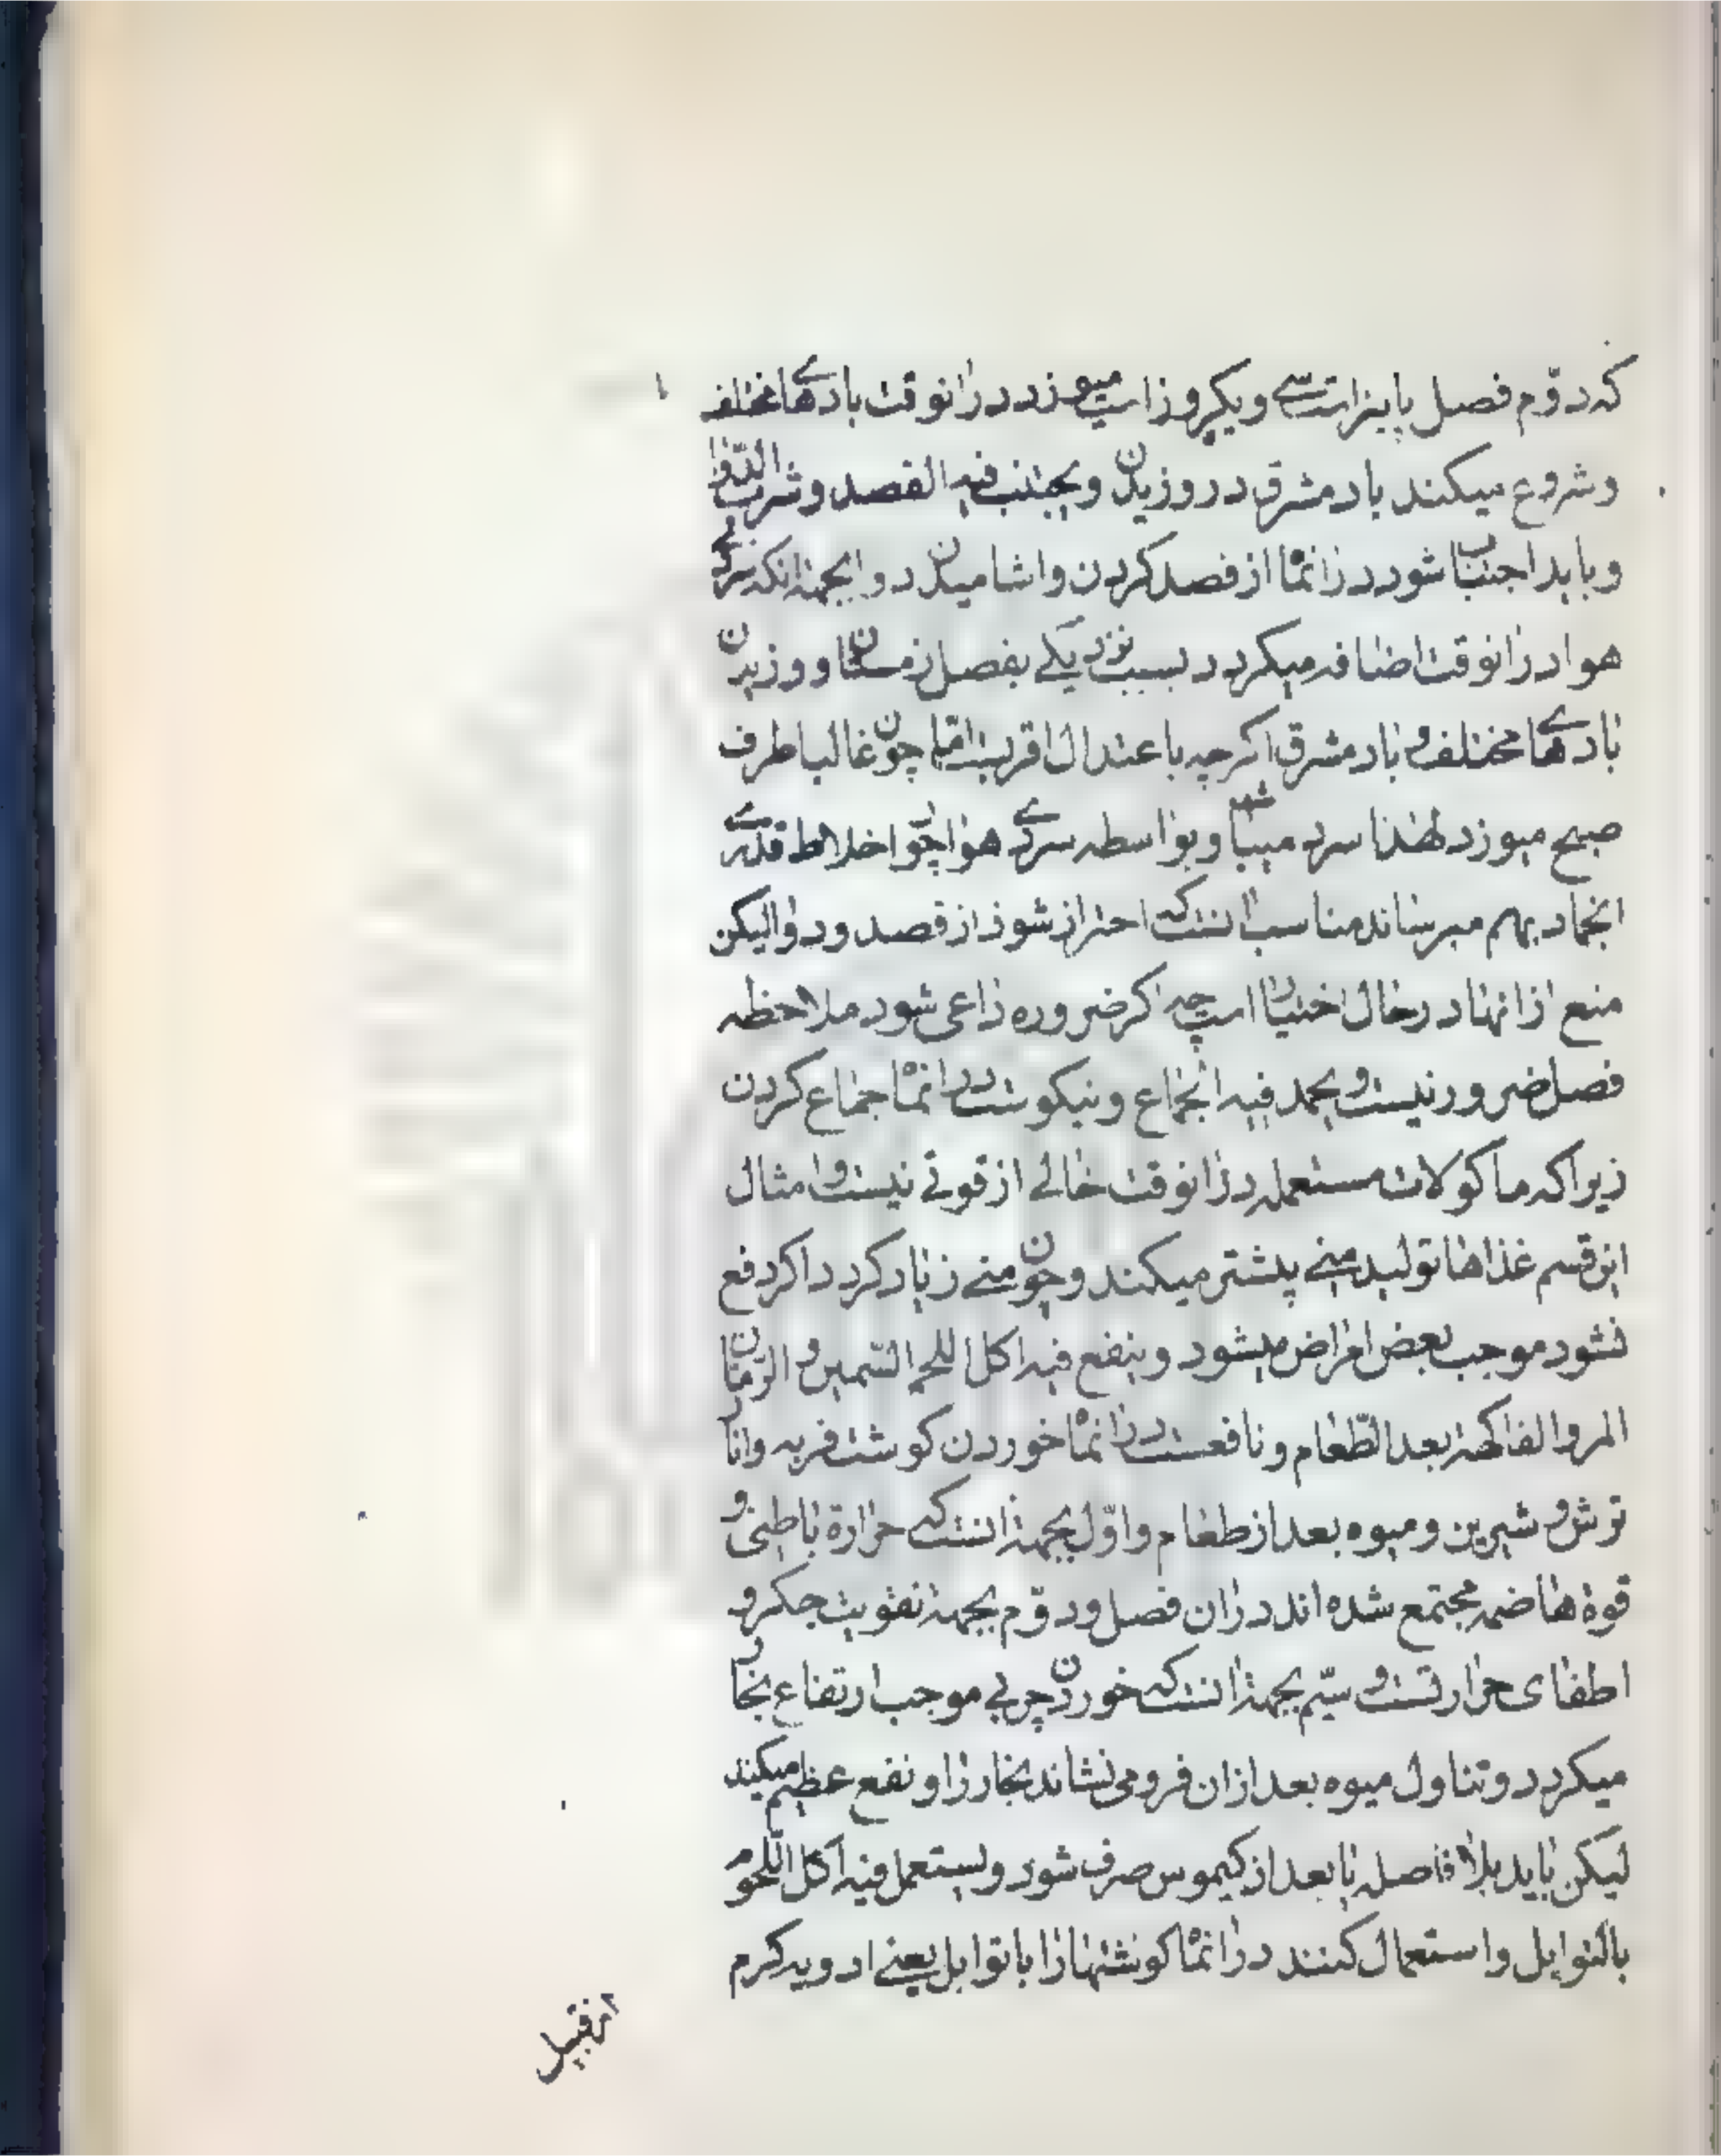 که دوّم فصل پاییز است سی ویکروز است میوزد در آنوقت بادهای مختلف
وشروع میکند باد مشرق در وزیدن ویجتنب فیه الفصد وشرب الدّواء
وباید اجتناب شود در آنماه از فصد کردن واشامیدن دوا بجهة انکه سردی
هوا در آنوقت اضافه میکردد بسبب نزدیکی بفصل زمستان و وزیدن
بادهای مختلف و باد مشرق اکرچه باعتدال اقربست امّا چون غالبا طرف
صبح میوزد لهذا سرد میباشد وبواسطه سردی هوا چون اخلاط قدری
انجماد بهم میرساند مناسب آنست که احتراز شود از فصد ودوا لیکن
منع از انها در حال اختیار است چه اکر ضروره داعی شود ملاحظه
فصل ضرور نیست ویحمد فیه الجماع ونیکوست در آنماه جماع کردن
زیرا که ماکولات مستعمله در آنوقت خالی از قوتی نیست و امثال
این قسم غذاها تولید منی بیشتر میکند وچون منی زیاد کردد اکر دفع
نشود موجب بعض امراض میشود وینفع فیه اکل اللحم السّمین و الرّمان
المر والفاکهة بعد الطّعام ونافعست در آنماه خوردن کوشت فربه وانار
ترش و شیرین ومیوه بعد از طعام واوّل بجهة آنست که حرارة باطنی و
قوة هاضمه مجتمع شده اند در ان فصل ودوّم بجهة تقویت جکر و
اطفای حرارتست و سیّم بجهة آنست که خوردن چربی موجب ارتفاع بخار
میکردد وتناول میوه بعد از ان فرو می نشاند بخار را ونفع عظیم میکند
لیکن باید بلا فاصله یا بعد از کیموس صرف شود ویستعمل فیه اکل اللّحوم
بالتوابل واستعمال کنند در آنماه کوشتها را با توابل یعنی ادویه کرم
از قبیل